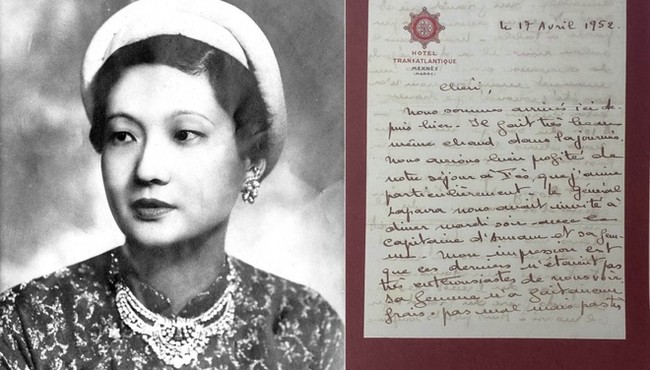 le 17 Avril 1952.
HOTEL
TRANSATLANTIQUE
MEKNÈS
(MAROC)
Chéri,
Nous sommes arrivés ici de-
puis hier. Il fait très beau
même chaud dans la journée.
Nous avions bien profité de
notre séjour à Fès, que j'aime
particulièrement. Le Général
Laparra nous avait invité à
diner mardi soir avec le
capitaine d'Arnaud et sa fem-
me. Mon impression est
que ces derniers n'étaient pas
très enthousiastes de nous voir.
Sa femme n'a
frais. pas mal mais pas très